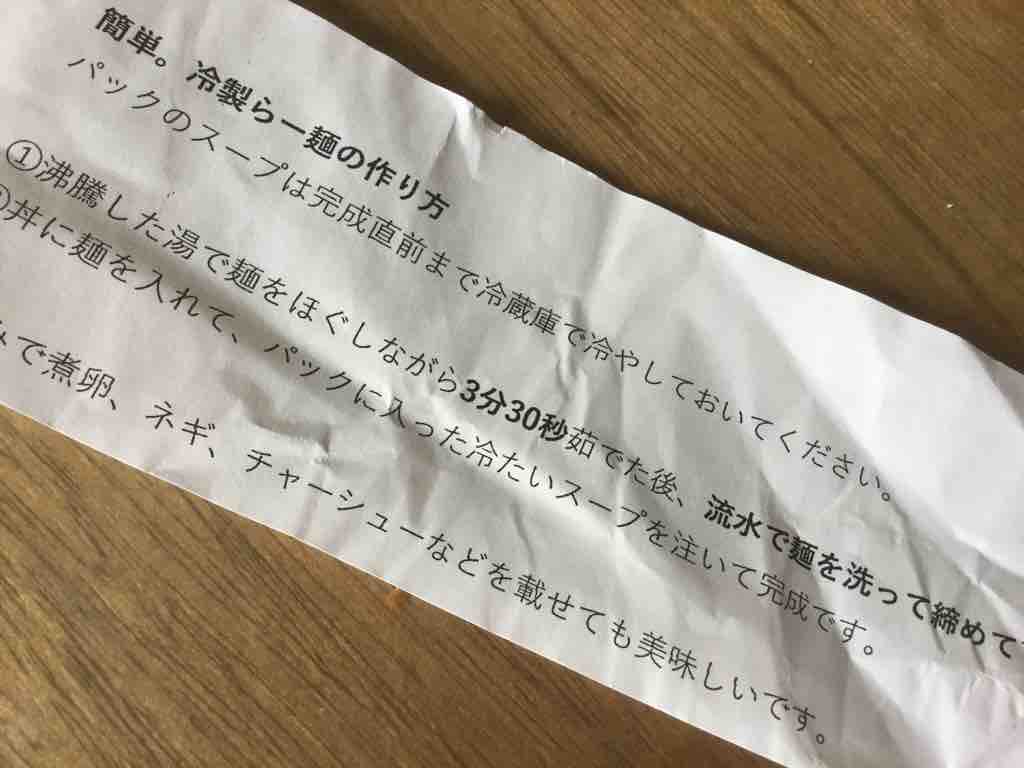 簡単。冷製らー麺の作り方
パックのスープは完成直前まで冷蔵庫で冷やしておいてください。
①沸騰した湯で麺をほぐしながら3分30秒茹でた後、流水で麺を洗って締めて
丼に麺を入れて、パックに入った冷たいスープを注いで完成です。
で煮卵、ネギ、チャーシューなどを載せても美味しいです。